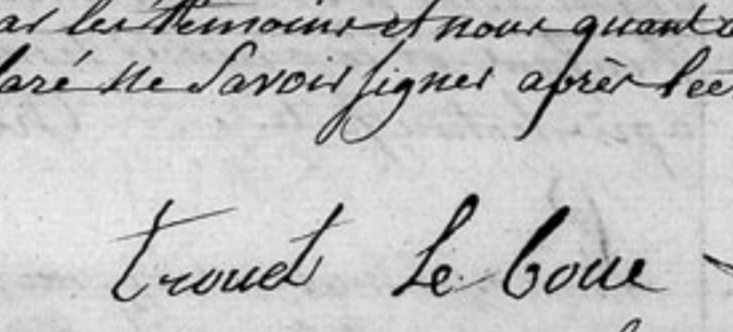 ar les témoins et nous quant a
laré ne Savoir signer après lec
trouet Le boue